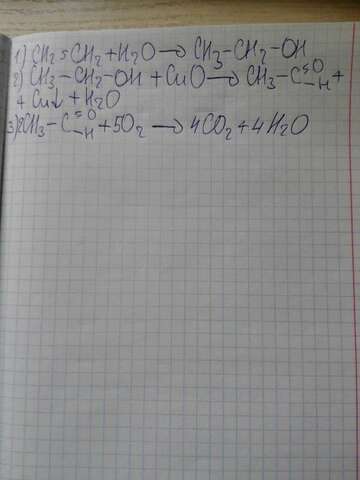 1) CH2=CH2+H2O→CH3-CH2-OH
2) CH3-CH2-OH+CuO→CH3-C=O-H+
+Cu↓+H2O
3) 2CH3-C=O-H+5O2→4CO2+4H2O